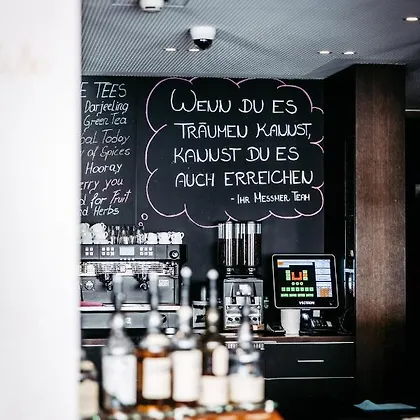 E TEES
Darjeeling
Green Tea
Today
of Spices
Hooray
rry you
d for Fruit
nd Herbs
WENN DU ES
TRÄUMEN KANNST,
KANNST DU ES
AUCH ERREICHEN
- IHR MESSMER TEAM
VECTRON